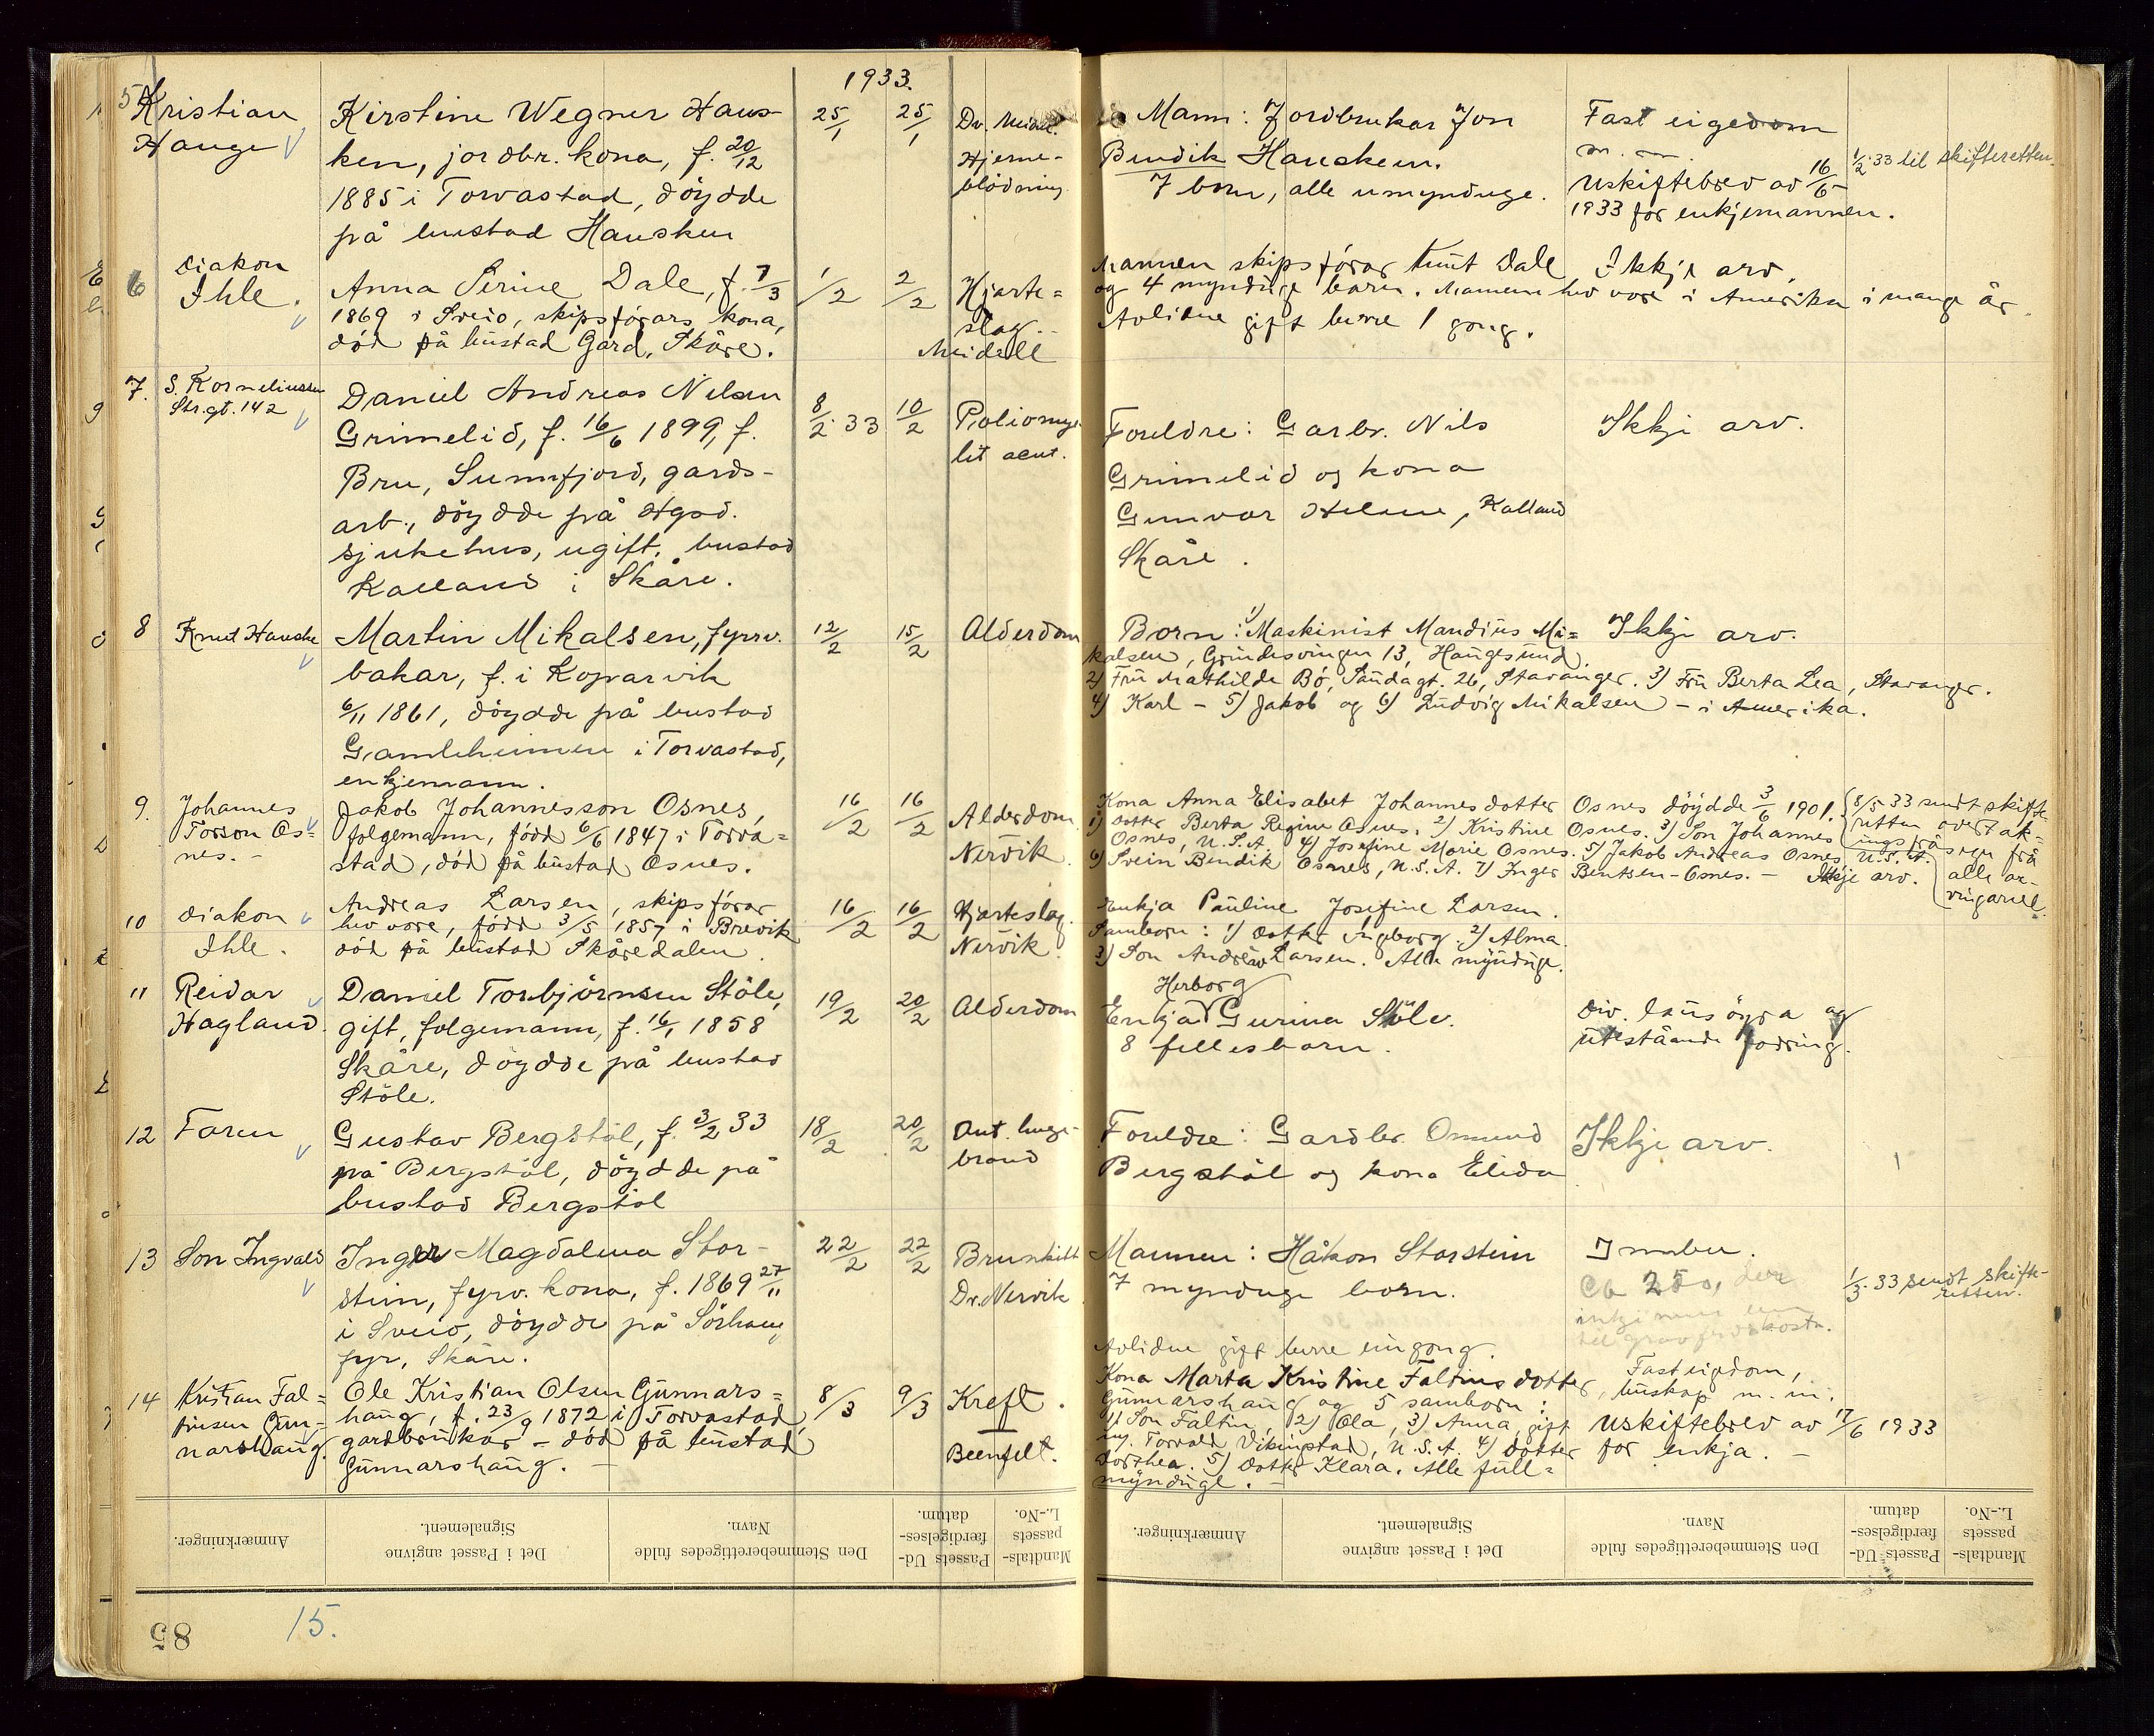 1933.
5 Kristian
Hauge
Kirstine Wegner Haus-
ken, jordbr. kona, f. 20/12
1885 i Torvastad, döydde
på bustad Hausken
25/1 25/1
Dr. Meidell.
Hjerne-
blödning
Mann: Jordbrukar Jon
Bendik Hausken.
7 born, alle umynduge.
Fast eigedom
m. m.
Uskiftebrev av 16/6
1933 for enkjemannen.
1/2.33 til skifteretten.
6 Diakon
Ihle.
Anna Serine Dale, f. 7/3
1869 i Sveio, skipsförars kona,
död på bustad Gard, Skåre.
1/2 2/2
Hjarte=
slag.
Meidell
Mannen skipsförar Knut Dale Ikkje arv.
og 4 mynduge born. Mannen hev vore i Amerika i mange år.
Avlidne gift berre 1 gong.
7. S. Korneliussen
Str.gt. 142
Daniel Andreas Nilsen
Grimelid, f. 16/6 1899, f.
Bru, Sunnfjord, gards-
arb., döydde på Hgsd.
sjukehus, ugift, bustad
Kalland i Skåre.
8/2.33 10/2
Poliomye-
lit acut.
Foreldre: Garbr. Nils
Grimelid og kona
Gunvor Helene, Kalland
Skåre.
Ikkje arv.
8 Knut Hauske
Martin Mikalsen, fyrrv.
bakar, f. i Kopervik
6/11 1861, döydde på bustad
Gamleheimen i Torvastad,
enkjemann.
12/2 15/2
Alderdom
Born: 1) Maskinist Mandius Mi=
kalsen, Grindesvingen 13, Haugesund.
2) Fru Mathilde Bö, Sandagt. 26, Stavanger. 3) Fru Berta Lea, Stavanger.
4) Karl - 5) Jakob og 6) Ludvig Mikalsen - i Amerika.
Ikkje arv.
9. Johannes
Torson Os=
nes. -
Jakob Johannesson Osnes,
folgemann, född 6/6 1847 i Torva=
stad, död på bustad Osnes.
16/2 16/2
Alderdom
Nervik.
Kona Anna Elisabet Johannesdotter Osnes döydde 3/6 1901.
1) Dotter Berta Regine Osnes. 2) Kristine Osnes. 3) Son Johannes
Osnes, U.S.A. 4) Josefine Marie Osnes. 5) Jakob Andreas Osnes U.S.A.
6) Svein Bendik Osnes, U.S.A. 7) Inger Bentsen-Osnes. - Ikkje arv.
8/5 33 sendt skift-
retten overtak-
ingsfråsegn frå
alle ar-
vingane.
10 Diakon
Ihle.
Andreas Larsen, skipsförar
hev vore, född 3/5 1857 i Brevik
död på bustad Skåredalen.
16/2 16/2
Hjarteslag.
Nervik.
Enkja Pauline Josefine Larsen.
Samborn: 1) Dotter Ingeborg. 2) Alma.
3) Son Andrew Larsen. Alle mynduge.
11 Reidar
Hagland.
Daniel Torbjörnsen Stöle,
gift, folgemann, f. 16/1 1858
Skåre, döydde på bustad
Stöle.
19/2 20/2
Alderdom
Herborg
Enkja Gurina Stöle.
8 fellesborn.
Div. lausöyra og
utestående fodring.
12 Faren
Gustav Bergstöl, f. 3/2 33
på Bergstöl, döydde på
bustad Bergstöl
18/2 20/2
Ant. lunge-
brand
Foreldre: Gardbr. Omund
Bergstöl og kona Elida
Ikkje arv.
13 Son Ingvald
Inger Magdalena Stor-
stein, fyrv. kona, f. 1869 27/11
i Sveio, döydde på Sörhaug
fyr, Skåre.
22/2 22/2
Brunkitt
Dr. Nervik
Mannen: Håkon Storstein
7 mynduge born.
Avlidne gift berre ein gong.
Innbu.
Ca 250,
1/3.33 sendt skift-
retten.
14 Kristian Fal=
tinsen Gun-
narshaug.
Ole Kristian Olsen Gunnars=
haug, f. 23/9 1872 i Torvastad
gardbrukar - död på bustad
Gunnarshaug. -
8/3 9/3
Kreft.
Beenfelt.
Kona Marta Kristine Faltinsdotter
Gunnarshaug og 5 samborn:
1) Son Faltin, 2) Ola, 3) Anna, gift
m. Torvald Vikingstad, U.S.A. 4) Dotter
Dorthea. 5) Dotter Klara. Alle full=
mynduge. -
Fast eigedom,
buskap m. m.
Uskiftebrev av 17/6 1933
for enkja. -
Anmærkninger.
Det i Passet angivne
Signalement.
Den Stemmeberettigedes fulde
Navn.
Passets Ud-
færdigelses-
datum.
Mandtals-
passets
L.-No.
Anmærkninger.
Det i Passet angivne
Signalement.
Den Stemmeberettigedes fulde
Navn.
Passets Ud-
færdigelses-
datum.
Mandtals-
passets
L.-No.
85
15.